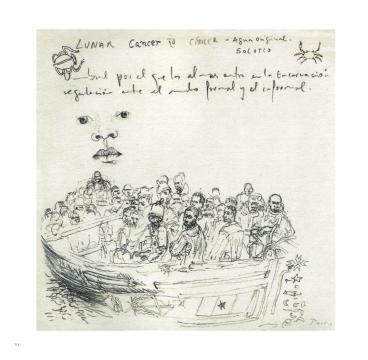 LUNAR Cancer TO CÁNCER - Agua original.
SOLSTICIO
umbral por el que las almas entran en la Encarnación
regulación entre el mundo formal y el informal.